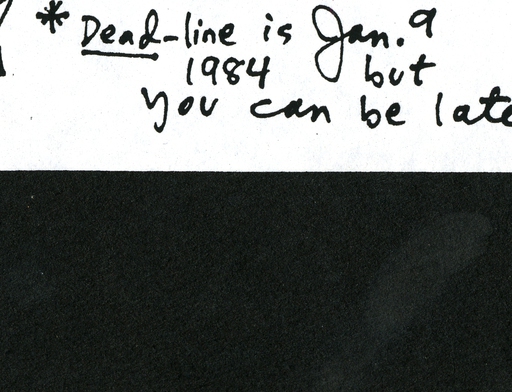 * Dead-line is Jan. 9
1984 but
you can be late